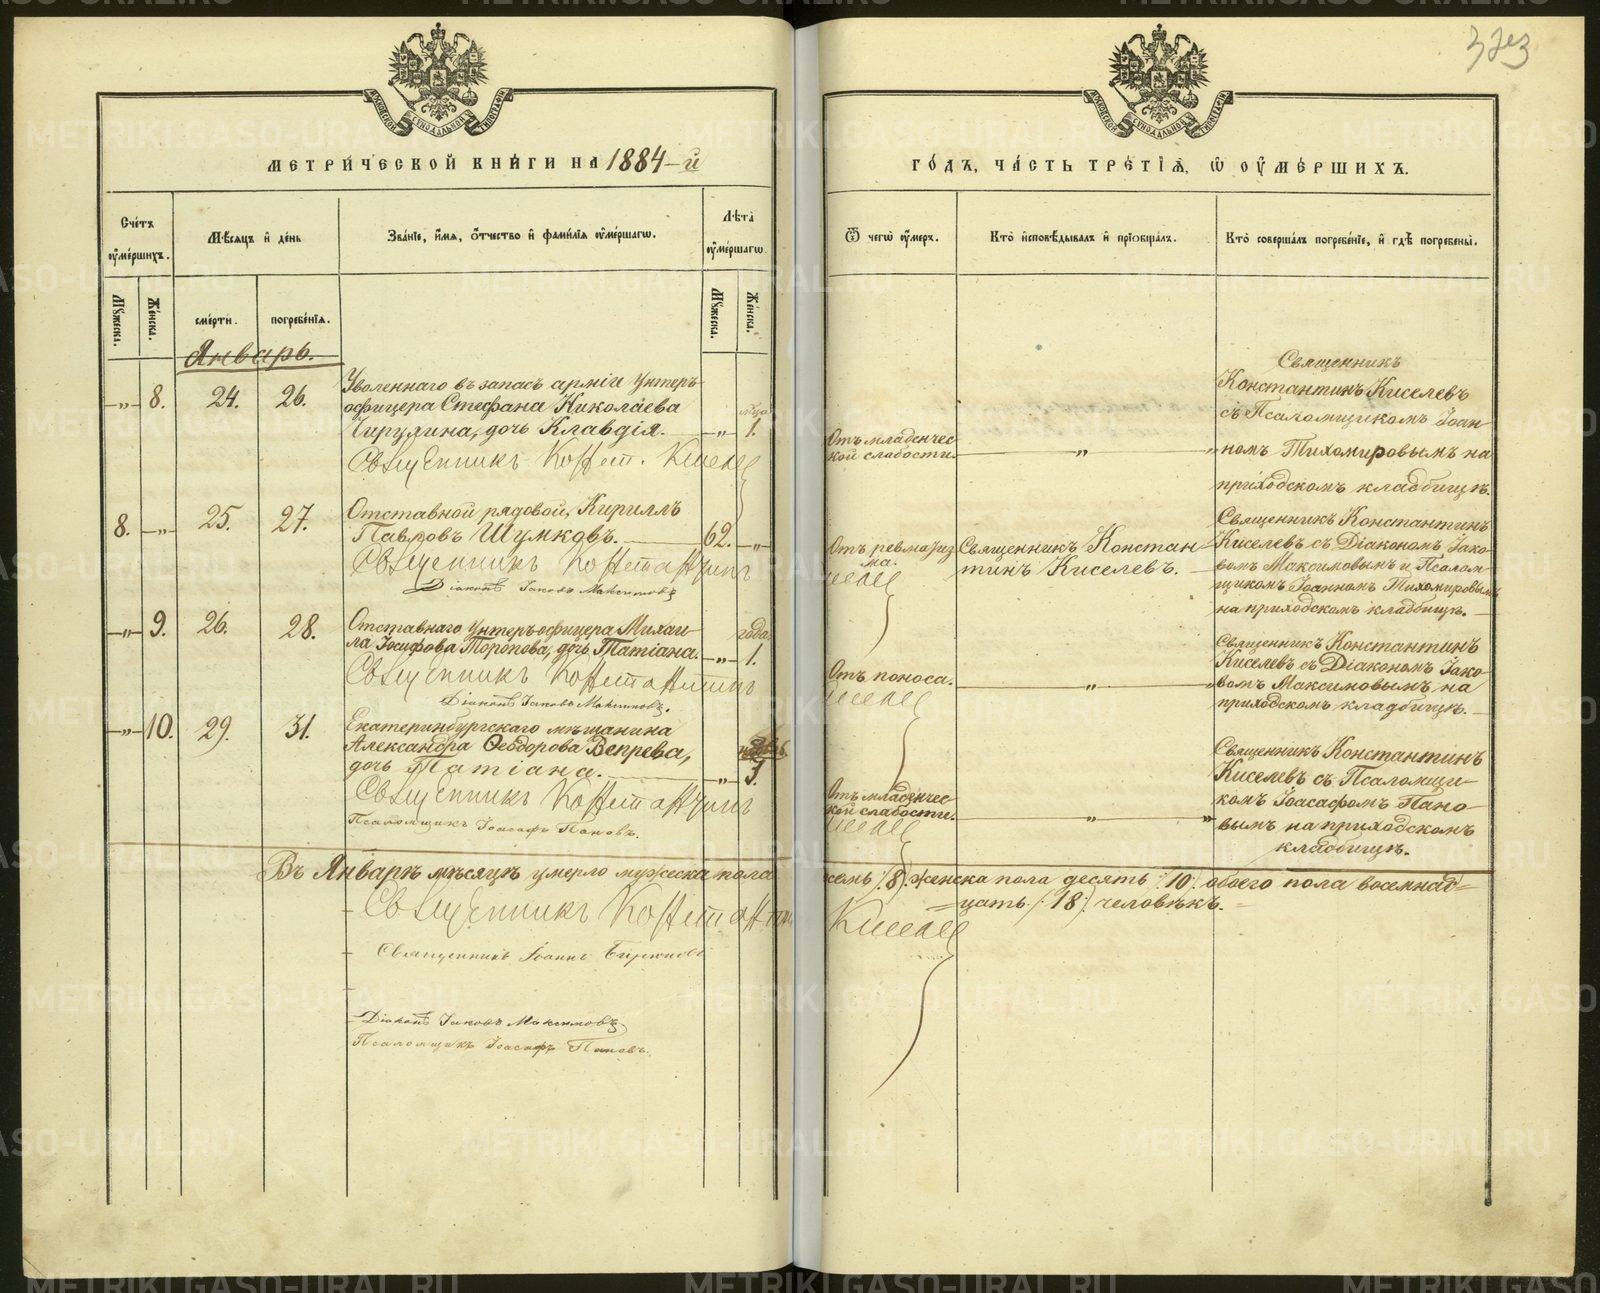 МЕТРИЧЕСКОЙ КНИГИ НА 1884-й
Счетъ умершихъ.
Мужеска.
Женска.
Мѣсяцъ и день
смерти.
погребенія.
Званіе, имя, отчество и фамилія умершаго.
Лѣта умершаго.
Мужеска.
Женска.
Январь.
-„- 8. 24. 26.
Уволеннаго въ запасъ арміи Унтеръ-
офицера Стефана Николаева
Чирулина, дочь Клавдія. -„- 1.
Священникъ Конст. Киселев
8. -„- 25. 27.
Отставной рядовой, Кириллъ
Павловъ Шумковъ. 62. „
Священникъ Константинъ
Діаконъ Іаковъ Максимовъ
-„- 9. 26. 28.
Отставнаго Унтеръ-офицера Михаи-
ла Іосифова Торопова, дочь Татіана. -„- 1.
года
Священникъ Константинъ
Діаконъ Іаковъ Максимовъ.
-„- 10. 29. 31.
Екатеринбургскаго мѣщанина
Александра Ѳеодорова Вепрева,
дочь Татіана. „
Священникъ Константинъ
Псаломщикъ Іоасафъ Пановъ.
Въ Январѣ мѣсяцѣ умерло мужеска пола
Священникъ Константин
Священникъ Іоаннъ
Діаконъ Іаковъ Максимовъ
Псаломщикъ Іоасафъ Пановъ.
ГОДЪ, ЧАСТЬ ТРЕТІЯ, Ѡ ОУМЕРШИХЪ.
Ѿ чего умеръ.
Кто исповѣдывалъ и пріобщалъ.
Кто совершалъ погребеніе, и гдѣ погребены.
Отъ младенчес-
кой слабости. „ „
Священникъ
Константинъ Киселевъ
съ Псаломщикомъ Іоан-
номъ Тихомировымъ на
приходскомъ кладбищѣ.
Отъ ревматиз
ма.
Священникъ Констан-
тинъ Киселевъ.
Священникъ Константинъ
Киселевъ съ Діакономъ Іако-
вомъ Максимовымъ и Псалом-
щикомъ Іоанномъ Тихомировымъ
на приходскомъ кладбищѣ.
Отъ поноса. „ „
Священникъ Константинъ
Киселевъ съ Діакономъ Іако-
вомъ Максимовымъ на
приходскомъ кладбищѣ.
Отъ младенчес-
кой слабости. „ „
Священникъ Константинъ
Киселевъ съ Псаломщи-
комъ Іоасафомъ Пано-
вымъ на приходскомъ
кладбищѣ.
семь /8/. женска пола десять /10/ обоего пола восемнад-
цать /18/. человѣкъ.
Киселев
METRIKI.GASO-URAL.RU